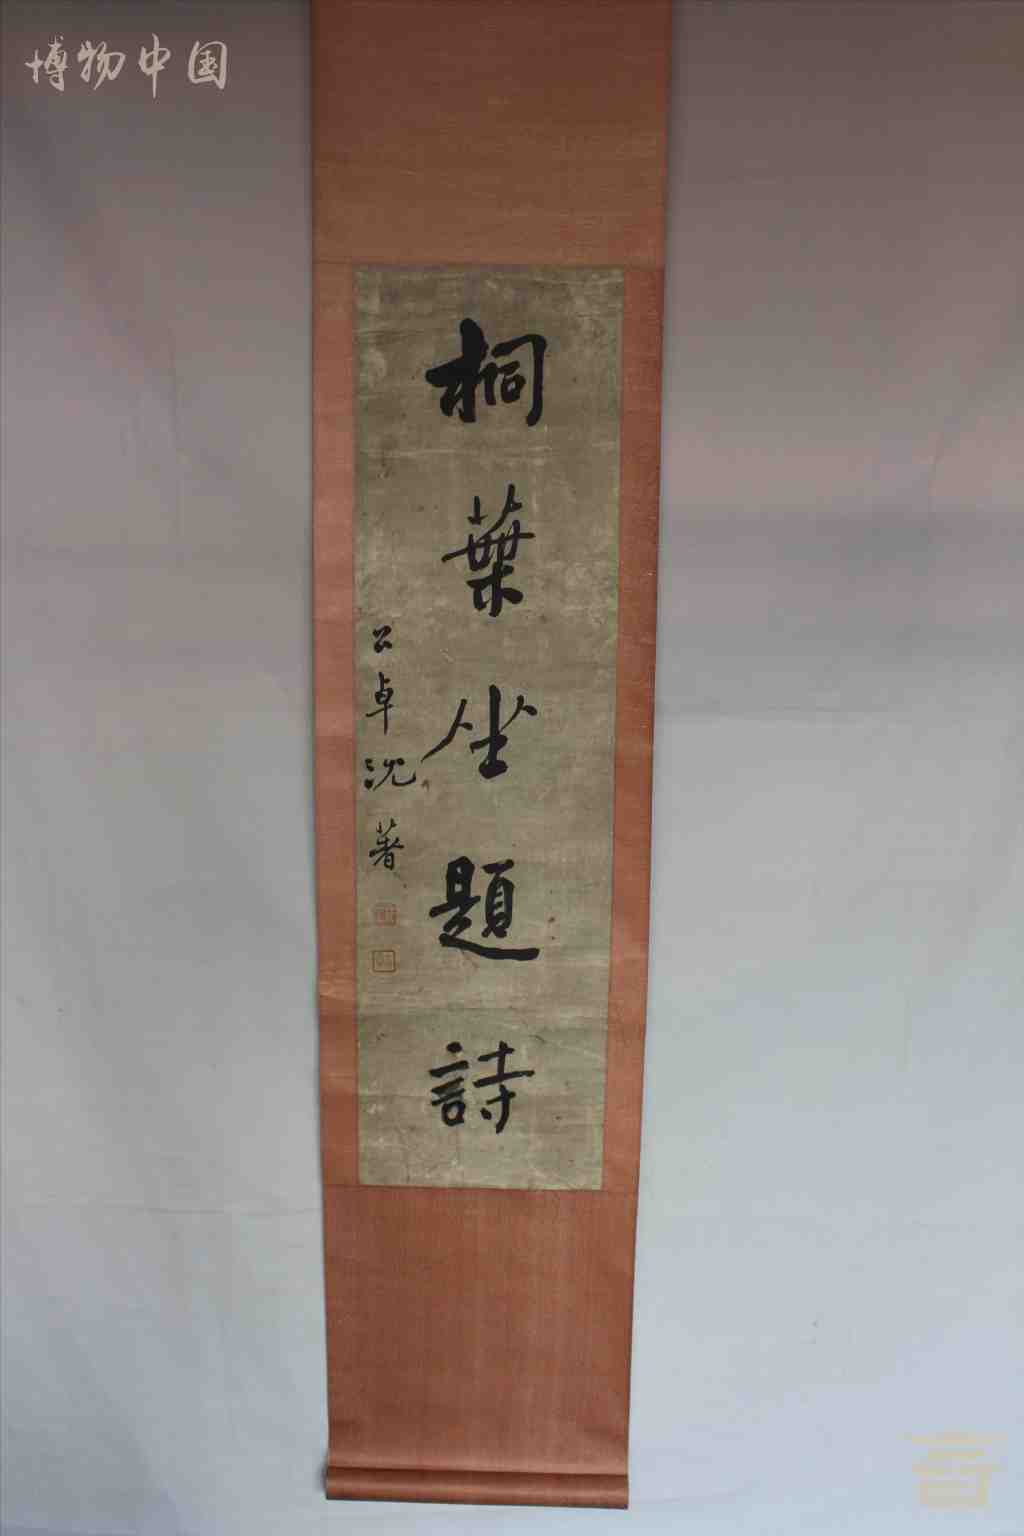 博物中国
桐葉坐題詩
公卓沈著